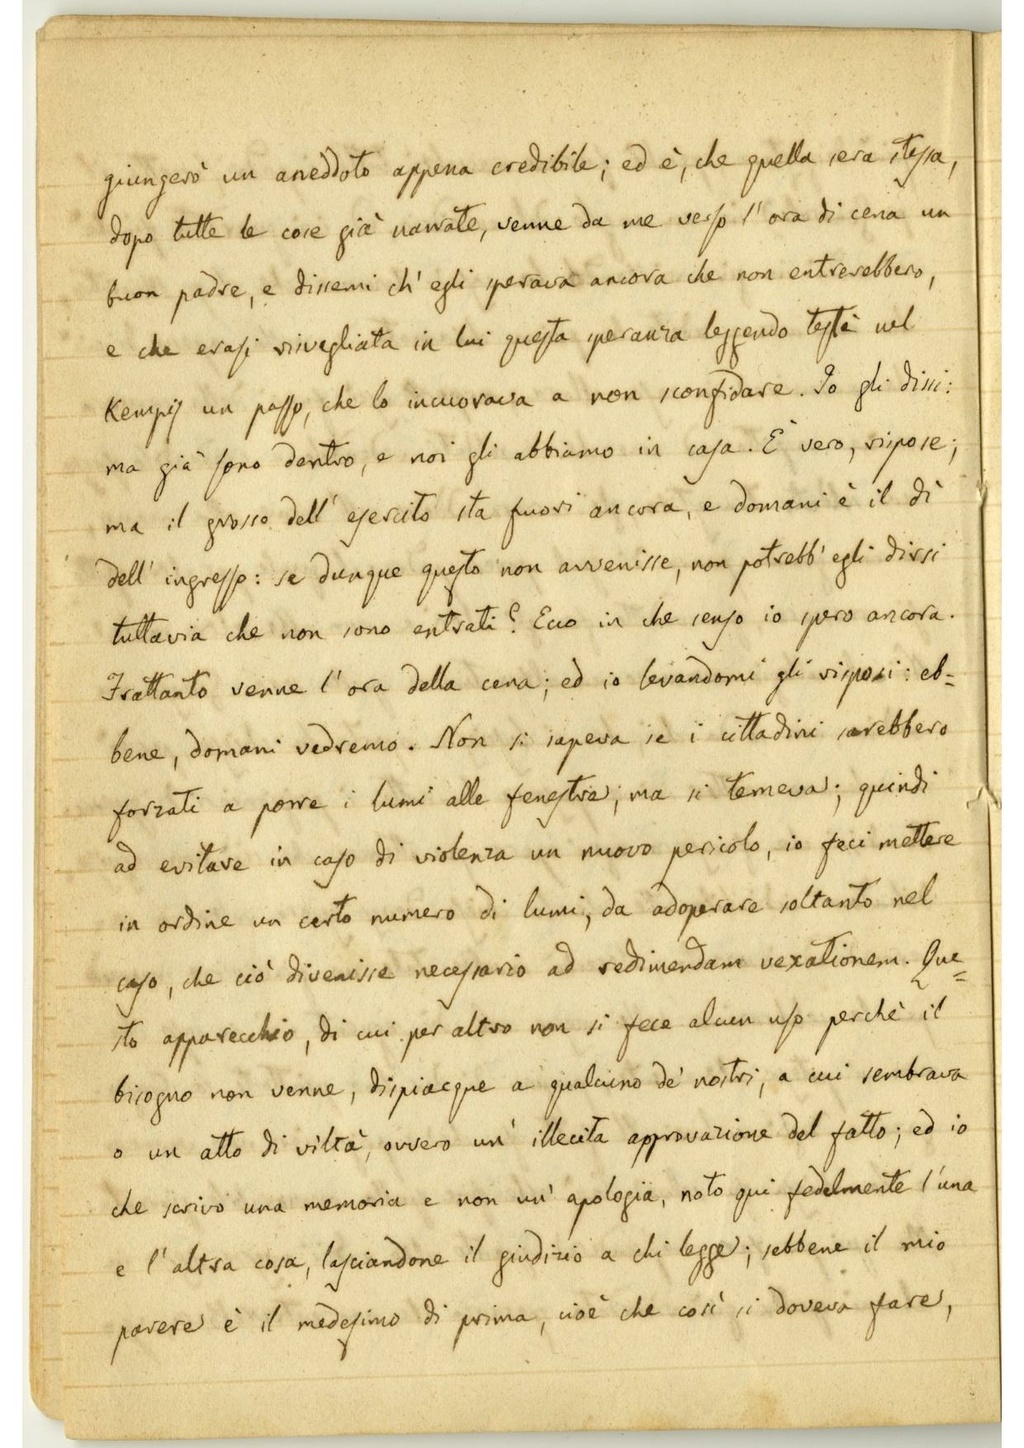 giungerò un aneddoto appena credibile; ed è, che quella sera stessa,
dopo tutte le cose già narrate, venne da me verso l'ora di cena un
buon padre, e dissemi ch'egli sperava ancora che non entrerebbero,
e che erasi risvegliata in lui questa speranza leggendo testè nel
Kempis un passo, che lo incuorava a non sconfidare. Io gli dissi:
ma già sono dentro, e noi gli abbiamo in casa. È vero, rispose;
ma il grosso dell'esercito sta fuori ancora, e domani è il dì
dell'ingresso: se dunque questo non avvenisse, non potrebb'egli dirsi
tuttavia che non sono entrati? Ecco in che senso io spero ancora.
Frattanto venne l'ora della cena; ed io levandomi gli risposi: eb=
bene, domani vedremo. Non si sapeva se i cittadini sarebbero
forzati a porre i lumi alle fenestre; ma si temeva; quindi
ad evitare in caso di violenza un nuovo pericolo, io feci mettere
in ordine un certo numero di lumi, da adoperare soltanto nel
caso, che ciò divenisse necessario ad redimendam vexationem. Que=
sto apparecchio, di cui per altro non si fece alcun uso perchè il
bisogno non venne, dispiacque a qualcuno de' nostri, a cui sembrava
o un atto di viltà, ovvero un' illecita approvazione del fatto; ed io
che scrivo una memoria e non un' apologia, noto qui fedelmente l'una
e l'altra cosa, lasciandone il giudizio a chi legge; sebbene il mio
parere è il medesimo di prima, cioè che così si doveva fare,